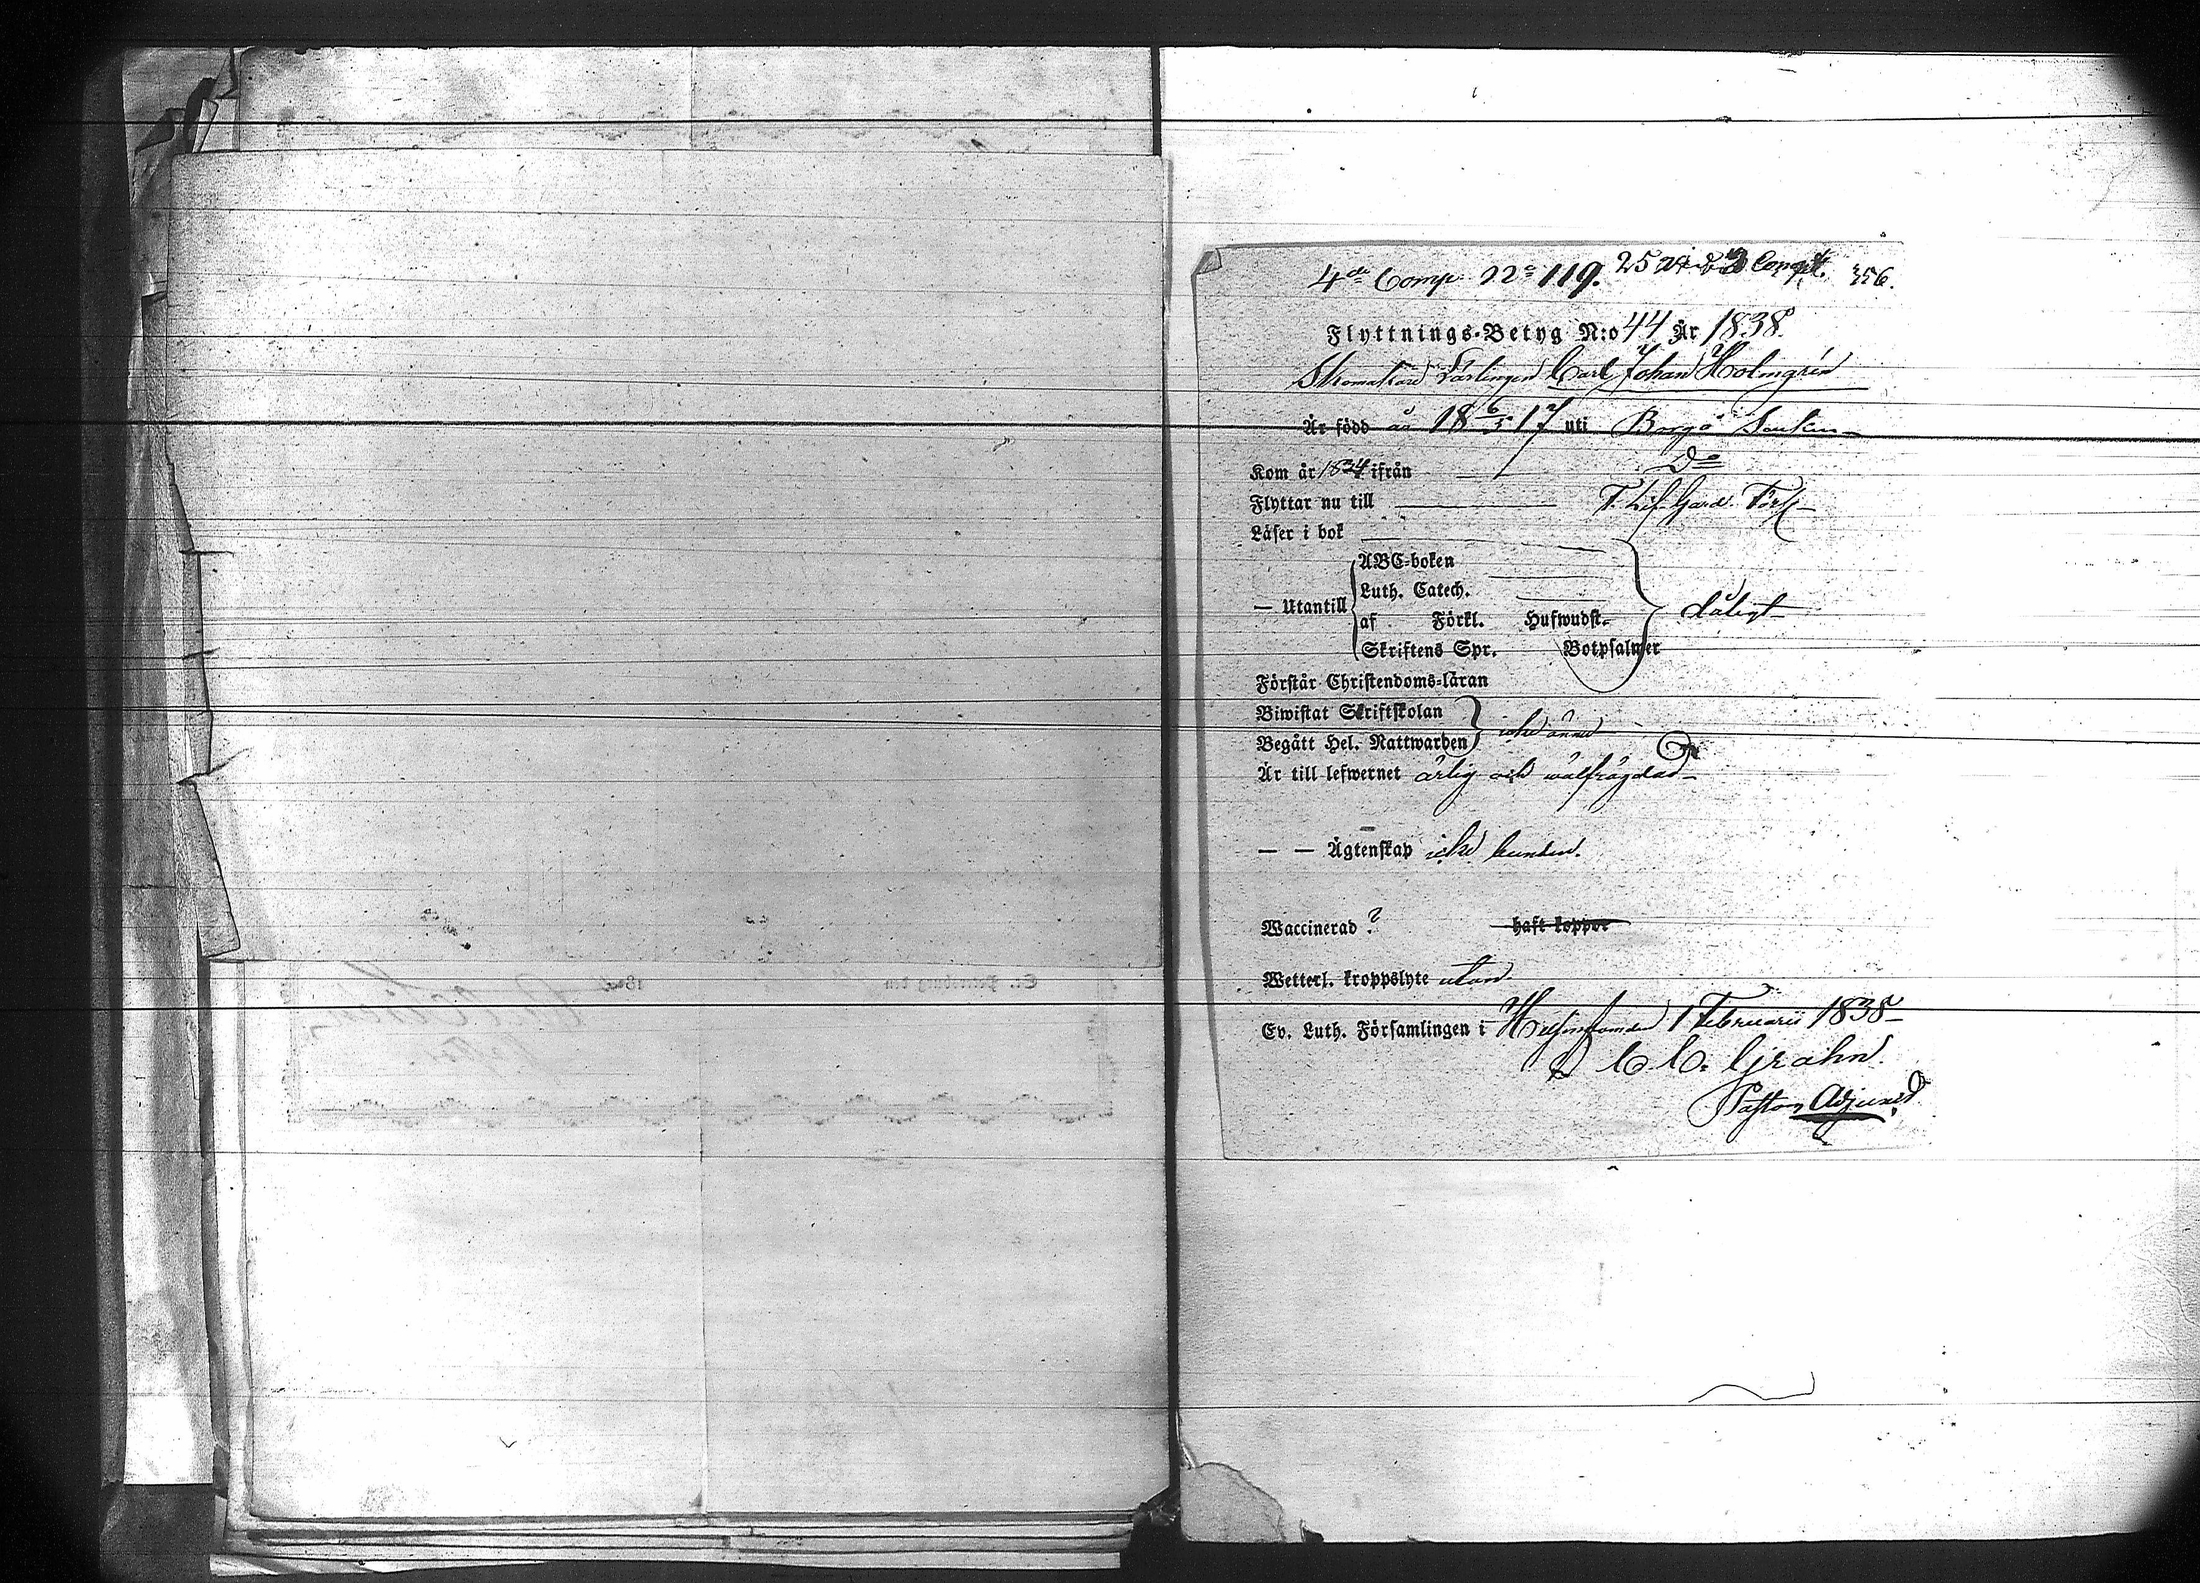 4de Comp. No 119. 25 Comp. 356.
Flyttnings-Betyg N:o 44 År 1838.
Skomakare Lärlingen Carl Johan Holmgrén
Är född år 18 6/5 17 uti Borgå Socken
Kom år 1834 ifrån Do
Flyttar nu till F. Lif. Gard. Förs.
Läser i bok
— Utantill
ABC-boken
Luth. Catech.
af Förkl. Hufwudst.
Skriftens Spr. Botpsalmer
dåligt
Förstår Christendoms-läran
Biwistat Skriftskolan
Begått Hel. Nattwarden
icke ännu
Är till lefwernet ärlig och wälfrägdad
— — Ägtenskap icke bunden.
Waccinerad ? haft koppor
Wetterl. kroppslyte utan
Ev. Luth. Församlingen i Helsingfors den 1 Februarii 1838
C. C. Grahn.
Pastors Adjunct.
St. Petersburg den 18
Pastor.